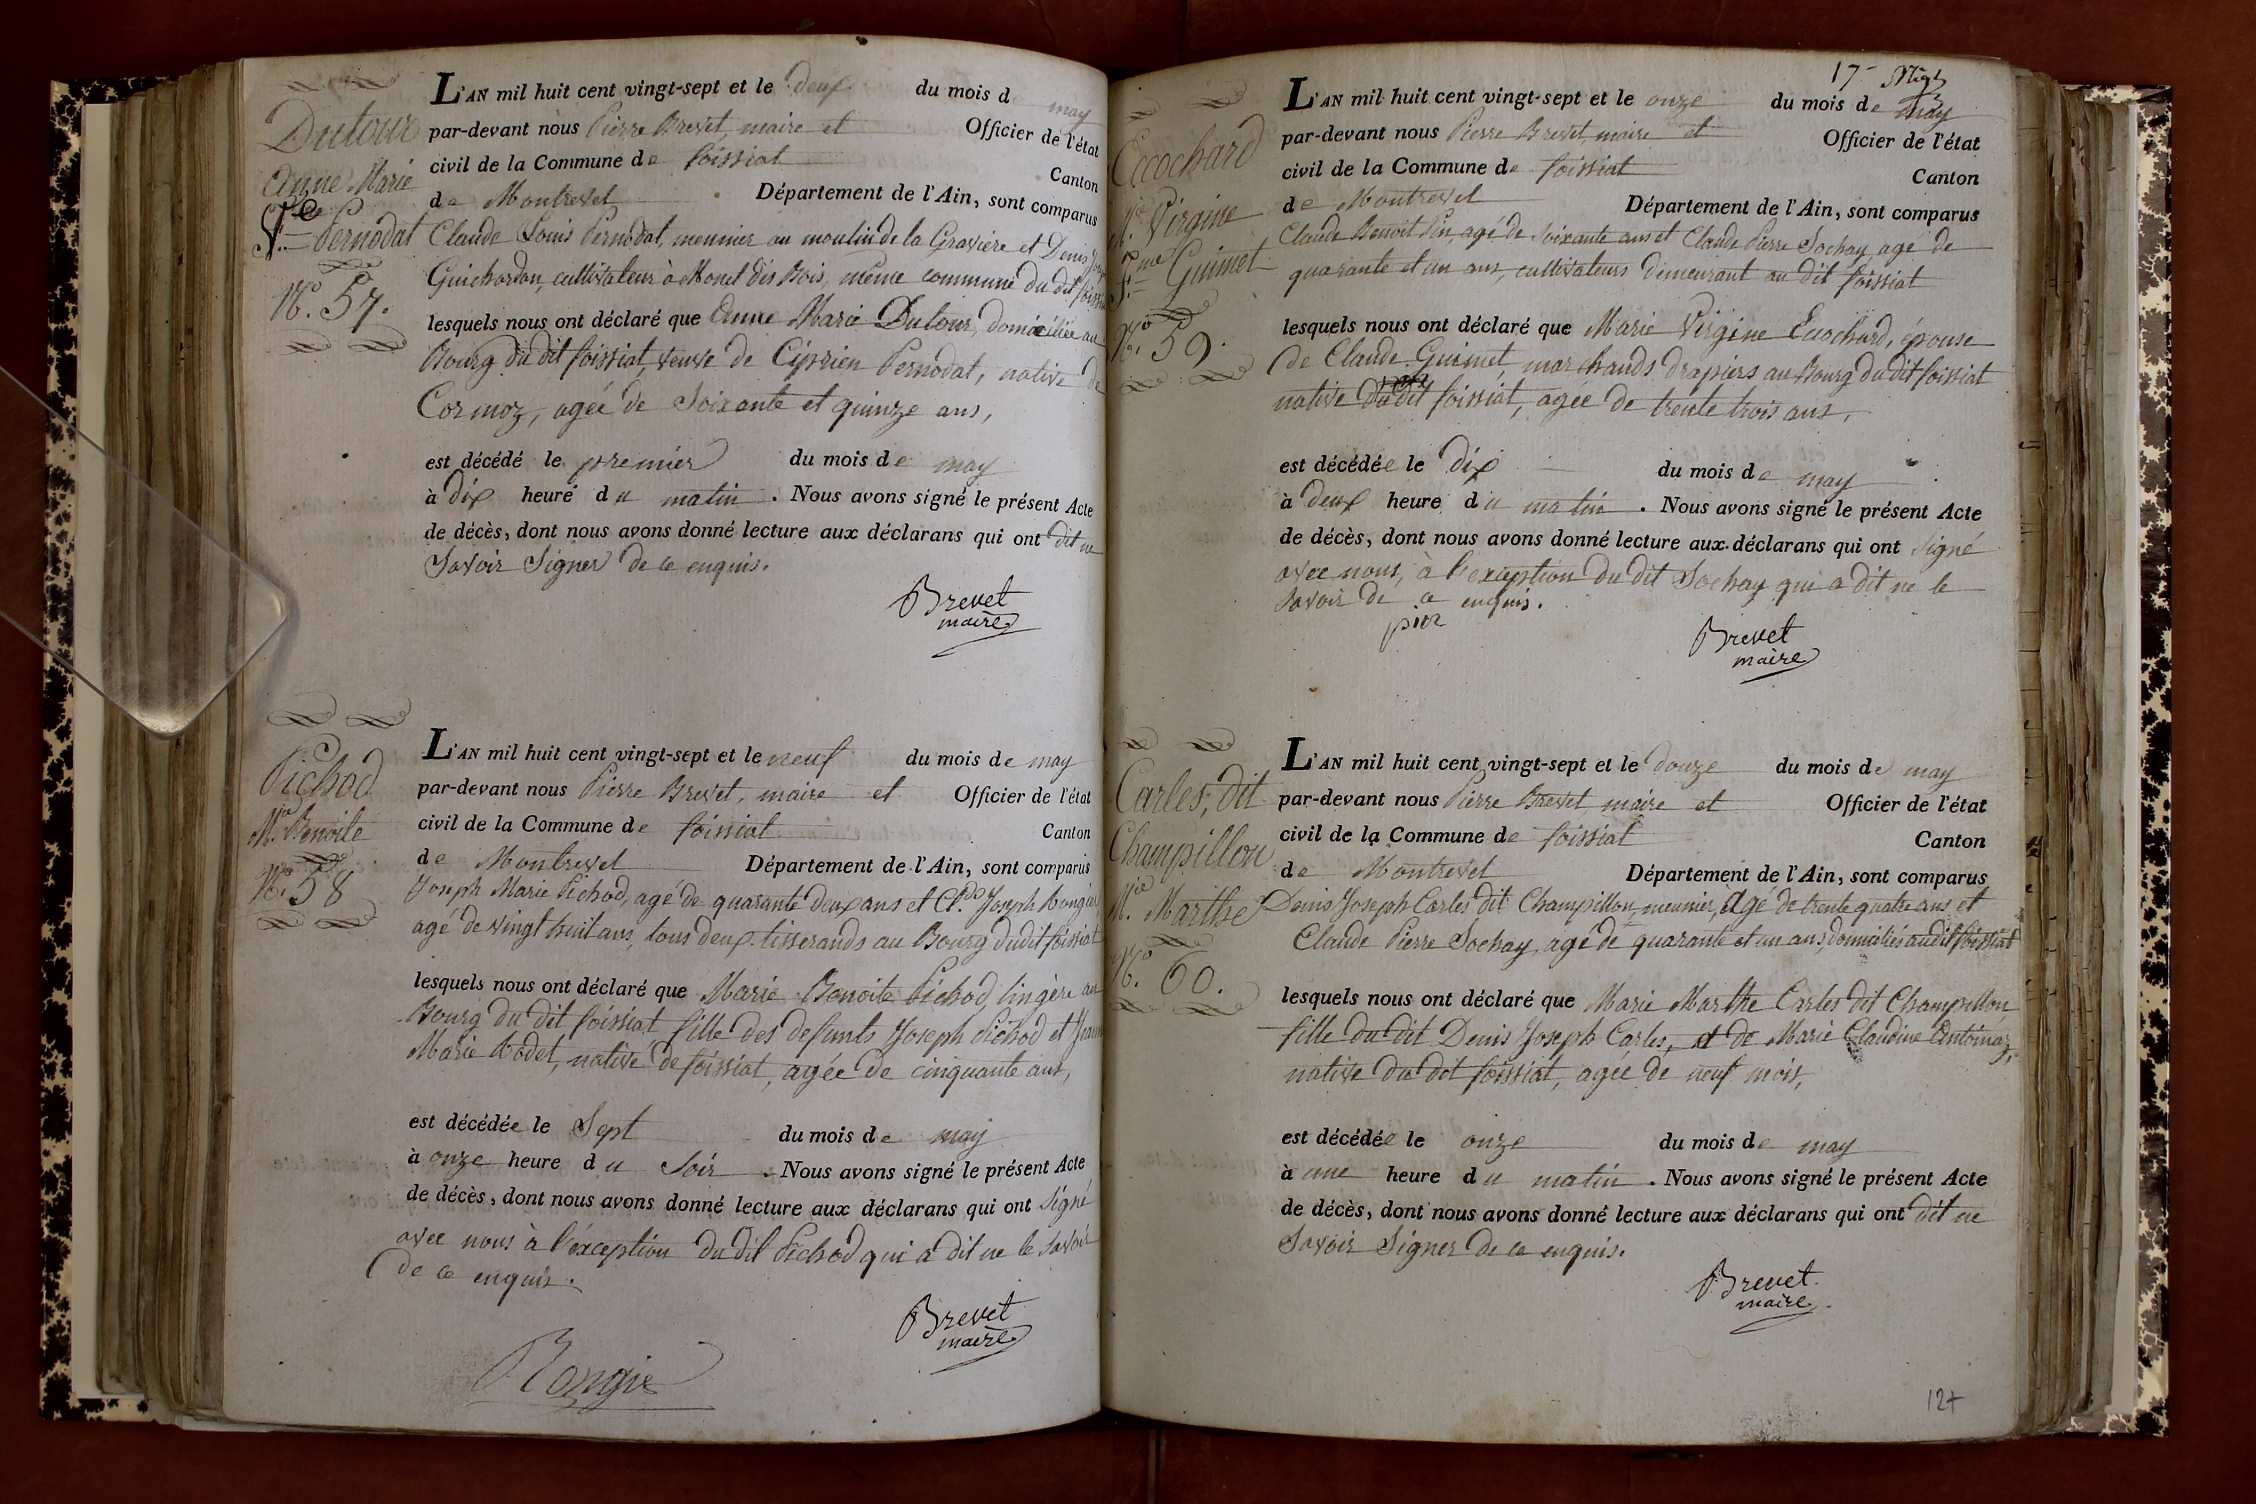 Dutour
Anne Marie
Vᵉ Pernodat
Nº 57.
L'AN mil huit cent vingt-sept et le deux du mois de may
par-devant nous Pierre Brevet, maire et Officier de l'état
civil de la Commune de foissiat Canton
de Montrevel Département de l'Ain, sont comparus
Claude Louis Pernodat, meunier au moulin de la Gravière et Denis
Guichardon, cultivateur à Monet des Bois, même commune du dit foissiat
lesquels nous ont déclaré que Anne Marie Dutour, domiciliée au
Bourg du dit foissiat, veuve de Ciprien Pernodat, native de
Cormoz, agée de Soixante et quinze ans,
est décédé le premier du mois de may
à dix heure du matin. Nous avons signé le présent Acte
de décès, dont nous avons donné lecture aux déclarans qui ont dit ne
Savoir Signer de ce enquis.
Brevet
maire
Pichod
Mⁱᵉ Benoite
Nº 58
L'AN mil huit cent vingt-sept et le neuf du mois de may
par-devant nous Pierre Brevet, maire et Officier de l'état
civil de la Commune de foissiat Canton
de Montrevel Département de l'Ain, sont comparus
Joseph Marie Pichod, agé de quarante deux ans et Cl.ᵈᵉ Joseph Rongier,
agé de vingt huit ans, tous deux tisserands au Bourg dudit foissiat
lesquels nous ont déclaré que Marie Benoite Pichod, lingère au
Bourg du dit foissiat fille des defunts Joseph Pichod et Jeanne
Marie Rodet, native de foissiat, agée de cinquante ans,
est décédée le Sept du mois de may
à onze heure du Soir. Nous avons signé le présent Acte
de décès, dont nous avons donné lecture aux déclarans qui ont Signé
avec nous à l'éxception du dit Pichod qui a dit ne le Savoir
de ce enquis.
Brevet
maire
Rongie
17
Ecochard
Mⁱᵉ Virgine
fᵐᵉ Guimet
Nº 59.
L'AN mil huit cent vingt-sept et le onze du mois de may
par-devant nous Pierre Brevet, maire et Officier de l'état
civil de la Commune de foissiat Canton
de Montrevel Département de l'Ain, sont comparus
Claude Benoit Pin, agé de Soixante ans et Claude Pierre Sochay, agé de
quarante et un ans, cultivateurs demeurant au dit foissiat
lesquels nous ont déclaré que Marie Virgine Ecochard, épouse
de Claude Guimet, marchands drapiers au Bourg du dit foissiat
native du dit foissiat, agée de trente trois ans,
est décédée le dix du mois de may
à deux heure du matin. Nous avons signé le présent Acte
de décès, dont nous avons donné lecture aux déclarans qui ont Signé
avec nous, à l'exception du dit Sochay qui a dit ne le
Savoir de ce enquis.
pin
Brevet
maire
Carles, dit
Champillon
Mⁱᵉ Marthe
Nº 60.
L'AN mil huit cent vingt-sept et le douze du mois de may
par-devant nous Pierre Brevet, maire et Officier de l'état
civil de la Commune de foissiat Canton
de Montrevel Département de l'Ain, sont comparus
Denis Joseph Carles dit Champillon, meunier, agé de trente quatre ans et
Claude Pierre Sochay, agé de quarante et un ans, domiciliés audit foissiat
lesquels nous ont déclaré que Marie Marthe Carles dit Champillon
fille du dit Denis Joseph Carles, et de Marie Claudine Antoinaz,
native du dit foissiat, agée de neuf mois,
est décédée le onze du mois de may
à une heure du matin. Nous avons signé le présent Acte
de décès, dont nous avons donné lecture aux déclarans qui ont dit ne
Savoir Signer de ce enquis.
Brevet
maire
127